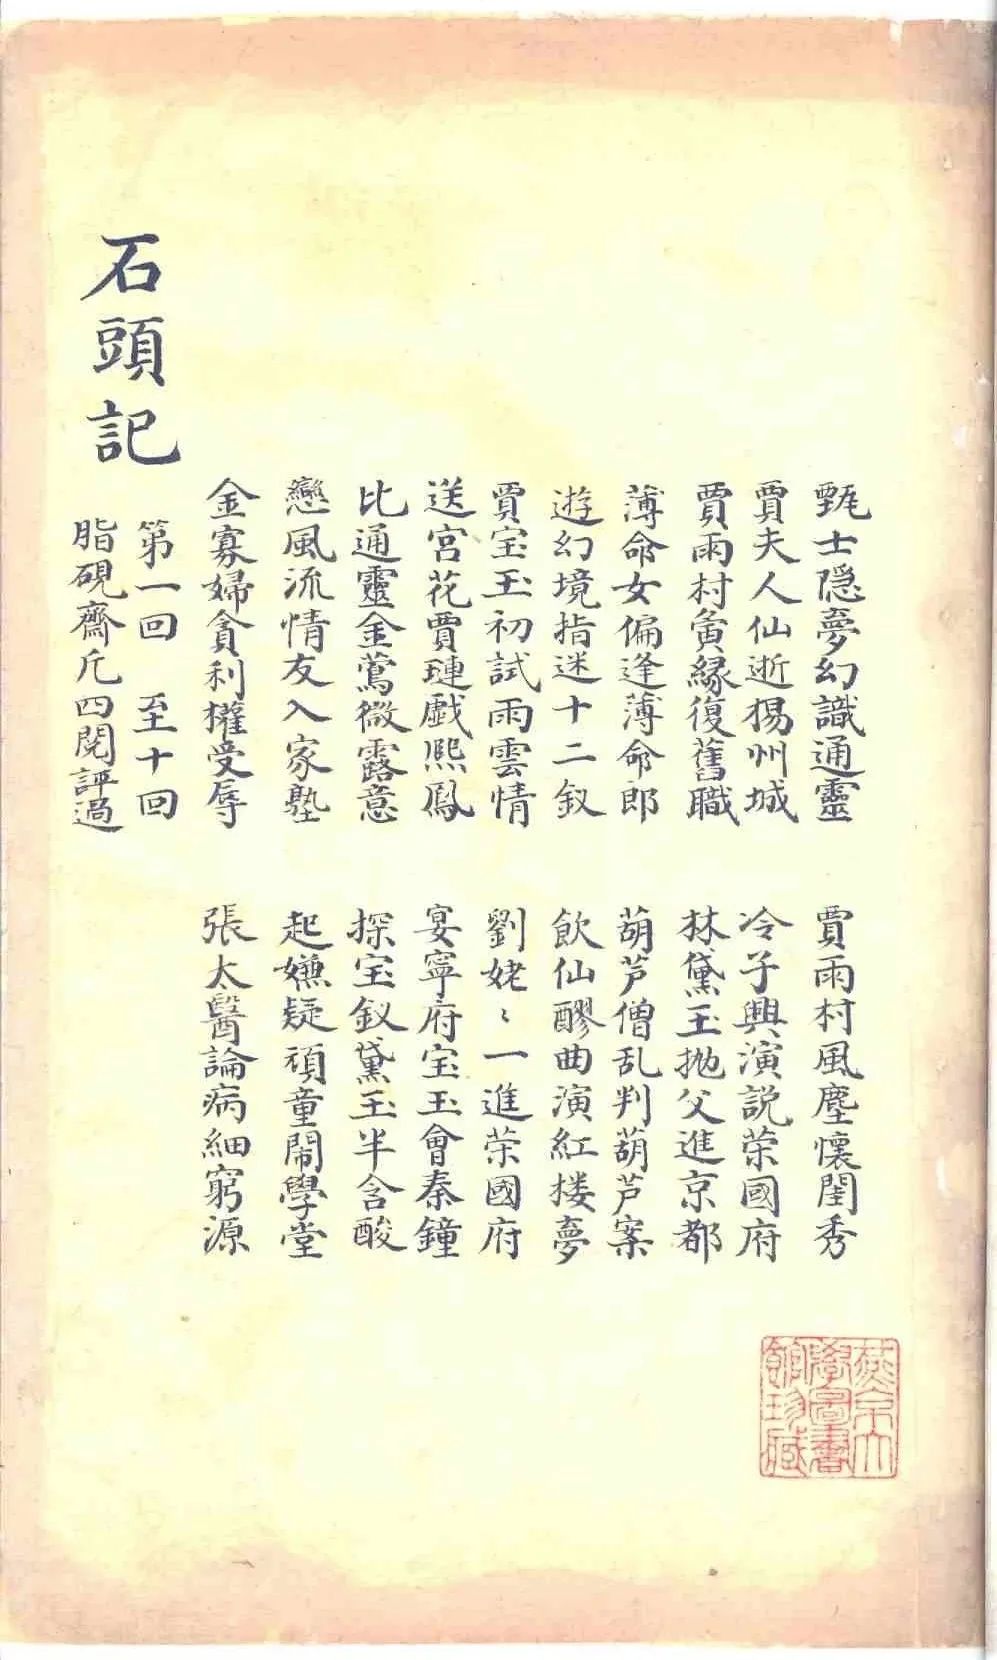 甄士隐夢幻識通靈 賈雨村風塵懷閨秀
賈夫人仙逝揚州城 冷子興演說荣國府
賈雨村夤緣復舊職 林黛玉抛父進京都
薄命女偏逢薄命郎 葫芦僧乱判葫芦案
遊幻境指迷十二釵 飲仙醪曲演紅楼夢
賈宝玉初試雨雲情 劉姥〻一進荣國府
送宮花賈璉戲熙鳳 宴寧府宝玉會秦鐘
比通靈金鶯微露意 探宝釵黛玉半含酸
戀風流情友入家塾 起嫌疑頑童鬧學堂
金寡婦貪利權受辱 張太醫論病細窮源
石頭記
第一回 至十回
脂硯齋凡四閱評過
燕京大
學圖書
館珍藏